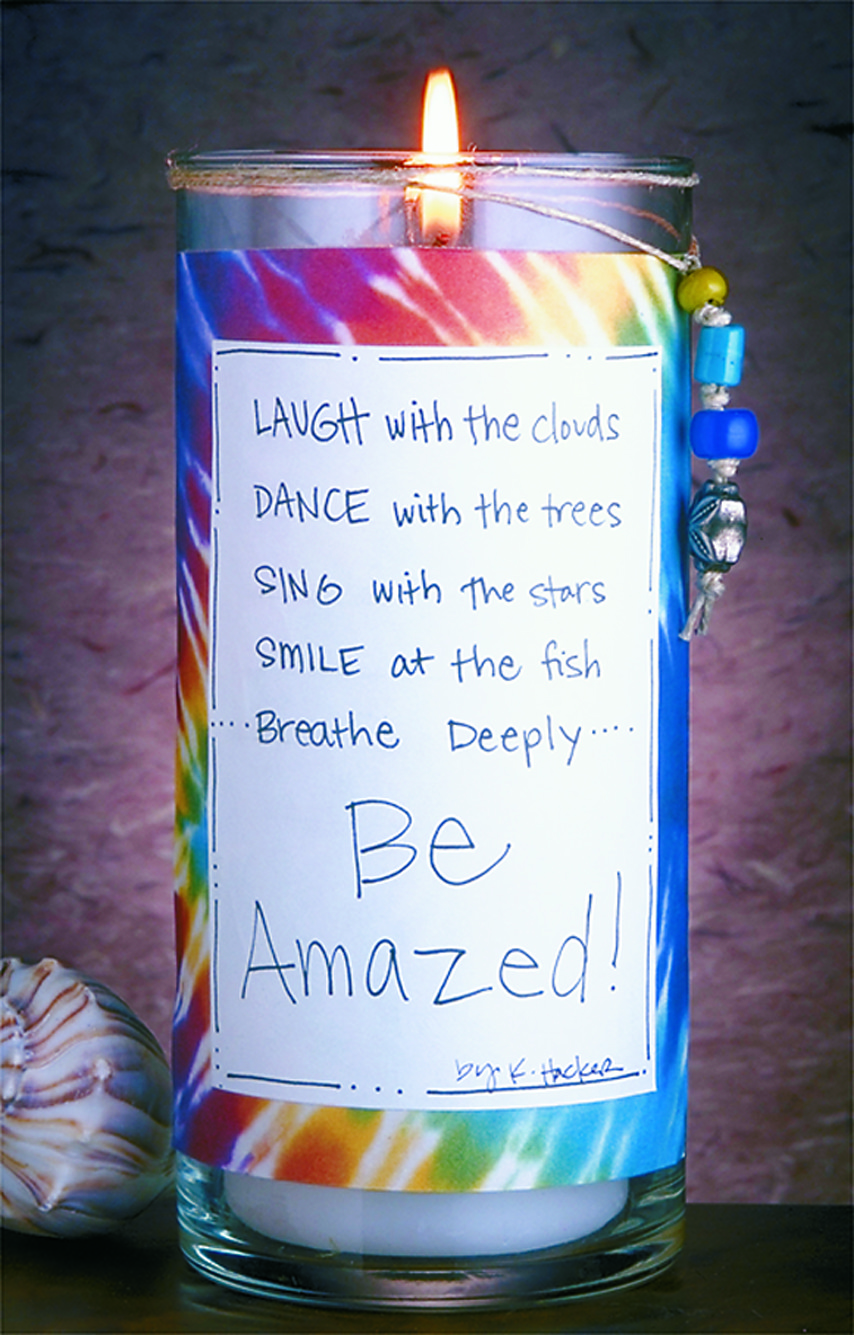 LAUGH with the clouds
DANCE with the trees
SING with the stars
SMILE at the fish
....Breathe Deeply....
Be
Amazed!
by K. Hacker